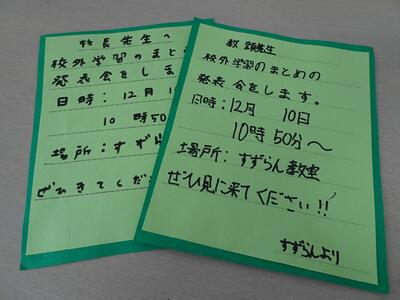 校長先生へ
校外学習のまとめ
発表会をしま
日時：12月 1
10時50
場所：すずら
ぜひきてくだ
教頭先生
校外学習のまとめの
発表会をします。
日時：12月 10日
10時50分～
場所：すずらん教室
ぜひ見に来てください!!
すずらんより